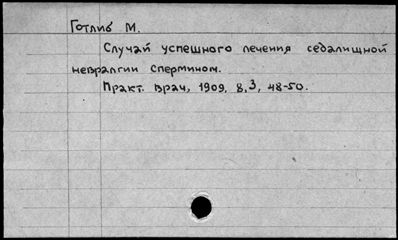 Готлиб М.
Случай успешного лечения седалищной
невралгии спермином.
Практ. врач, 1909, 8,3, 48-50.